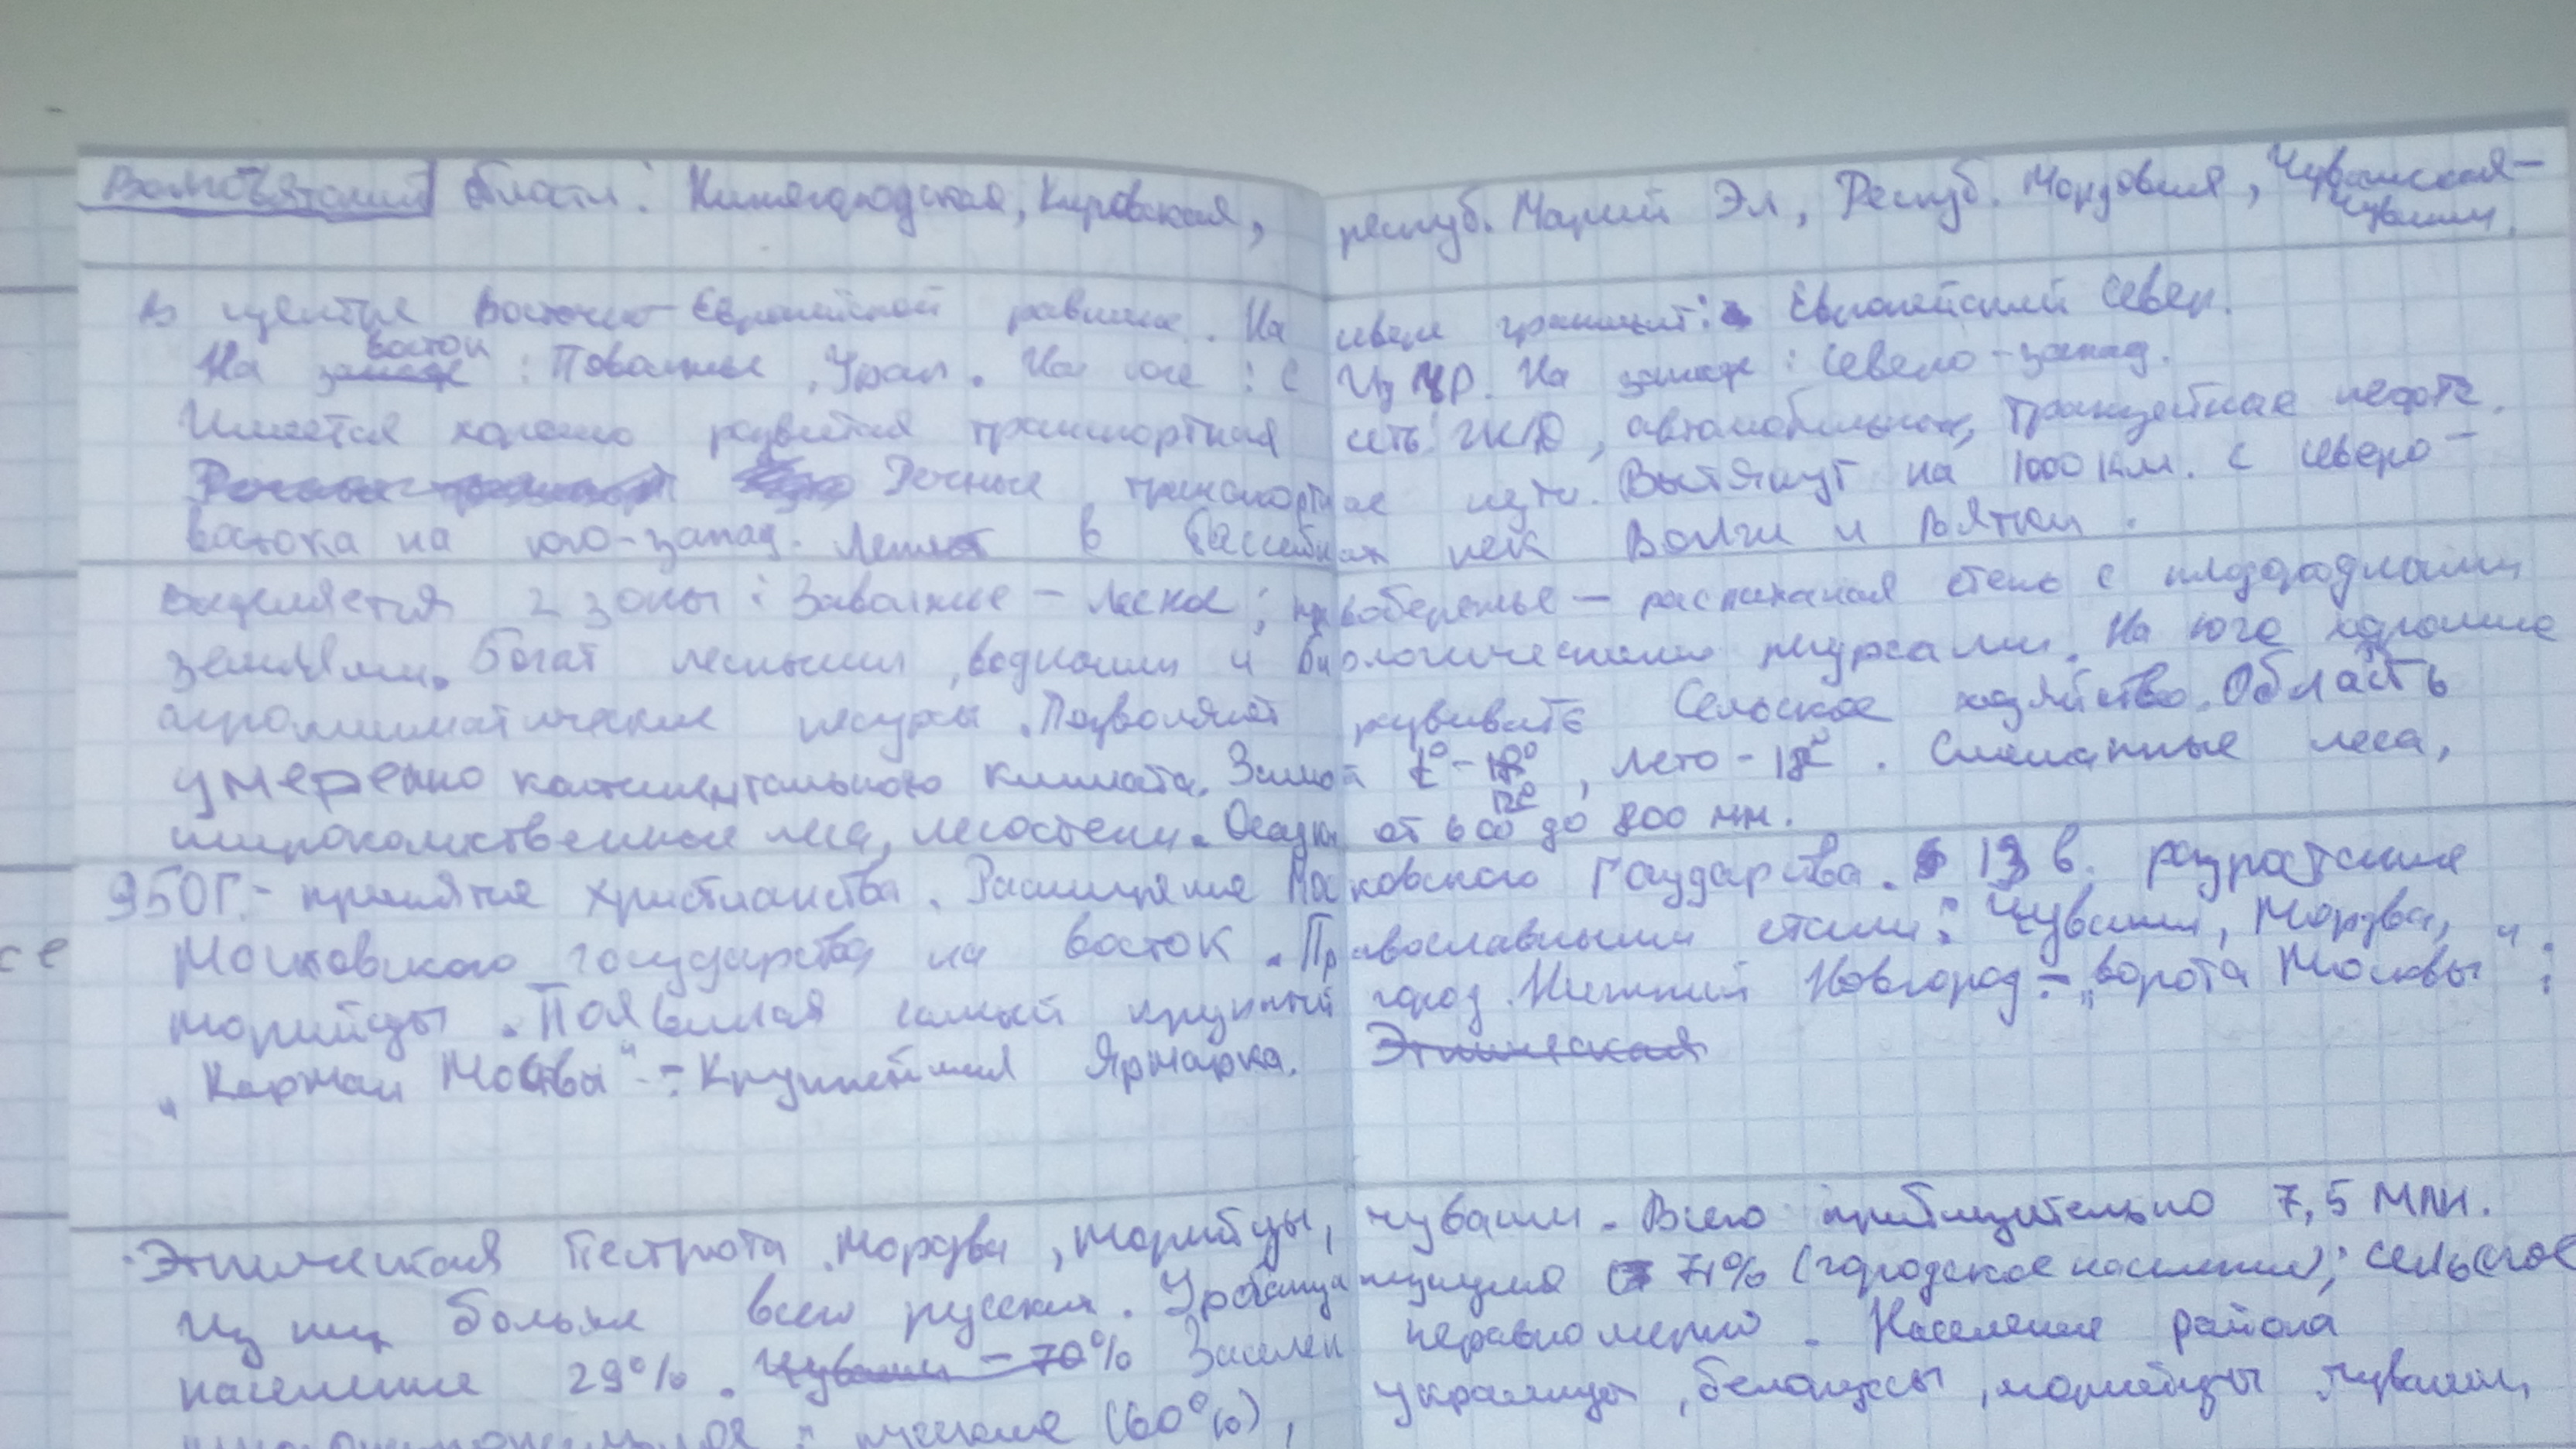 Волговятский области: Нижегородская, Кировская, респуб. Марий Эл, Респуб. Мордовия, Чувашская-
чуваши.
В центре Восточно-Европейской равнине. На севере граничит: Европейский север.
На запade восток: Поволжье, Урал. На юге: с ЦЧР. На западе: Северо-запад.
Имеется хорошо развитая транспортная сеть: Ж/Д, автомобильная, транзитные нефте.
Речные транспортные пути. Вытянут на 1000 км. с северо-
востока на юго-запад. Лежит в бассейнах рек Волги и Вятки.
выделяется 2 зоны: Заволжье - леса; правобережье - распаханая степь с плодородными
землями. Богат лесными, водными и биологическими ресурсами. На юге хорошие
агроклиматические ресурсы. Позволяют развивать Сельское хозяйство. Область
умеренно континентального климата. Зимой t° -12°, лето - 18°. Смешанные леса,
широколиственные леса, лесостепи. Осадки от 600 до 800 мм.
950 г. - принятие христианства. Расширение Московского Государства. 13 в. разрастание
Московского государства на восток. Православными стали: Чуваши, Мордва, и
морийцы. Появился самый крупный город Нижний Новгород - „ворота Москвы":
„Карман Москвы" - Крупнейшая Ярмарка. Этническая
Этническая пестрота. Мордва, морийцы, чуваши. Всего приблизительно 7,5 млн.
Из них больше всего русских. Урбанизация 71% (городское население); сельское
население 29%. Чуваши - 70% Заселен неравномерно. Население района
русские (60%), украинцы, белорусы, морийцы чуваши,
се